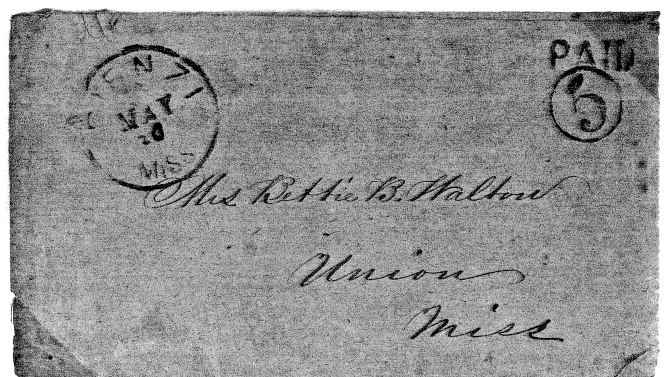 RIENZI
MAY
20
MISS
PAID
5
Mrs Bettie B. Walton
Union
Miss